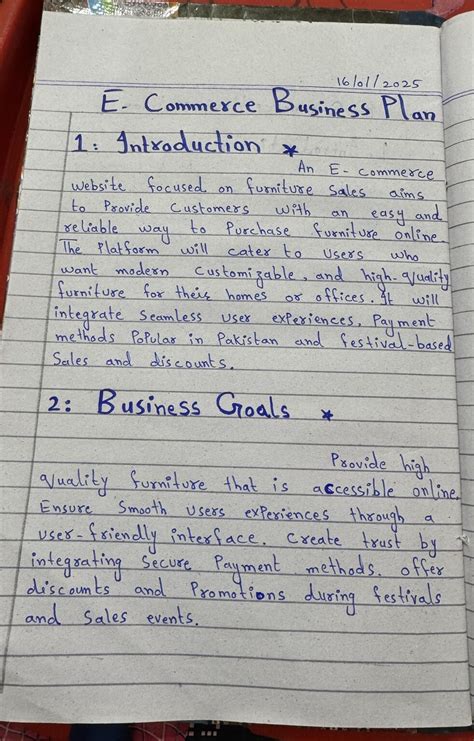 16/01/2025
E- Commerce Business Plan
1: Introduction *
An E-commerce
website focused on furniture sales aims
to Provide customers with an easy and
reliable way to Purchase furniture online.
The Platform will cater to users who
want modern customizable, and high-quality
furniture for their homes or offices. It will
integrate seamless user experiences, Payment
methods Popular in Pakistan and festival-based
Sales and discounts.
2: Business Goals *
Provide high
quality furniture that is accessible online.
Ensure Smooth users experiences through a
user-friendly interface. Create trust by
integrating Secure Payment methods. offer
discounts and Promotions during festivals
and Sales events.